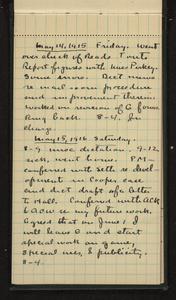 May 14, 1915. Friday. Went
over stack of Reads Tents
Report figures with Miss Pinkey.
Some snow. Dect mines
re mail room procedure
and improvement therein.
worked on revision of C forms
Ring back. 8-4. In
charge.
May 15, 1915. Saturday.
8-9 misc dictation. 9-12
sick, went home. P.M.
conferred with Seth re devel-
opment in Cooper case
and dict draft of a letter
to Hall. Conferred with ACK
& AOW re my future work.
Agreed that on June 1 I
will leave O and start
special work on game,
special uses, & publicity.
8-4.